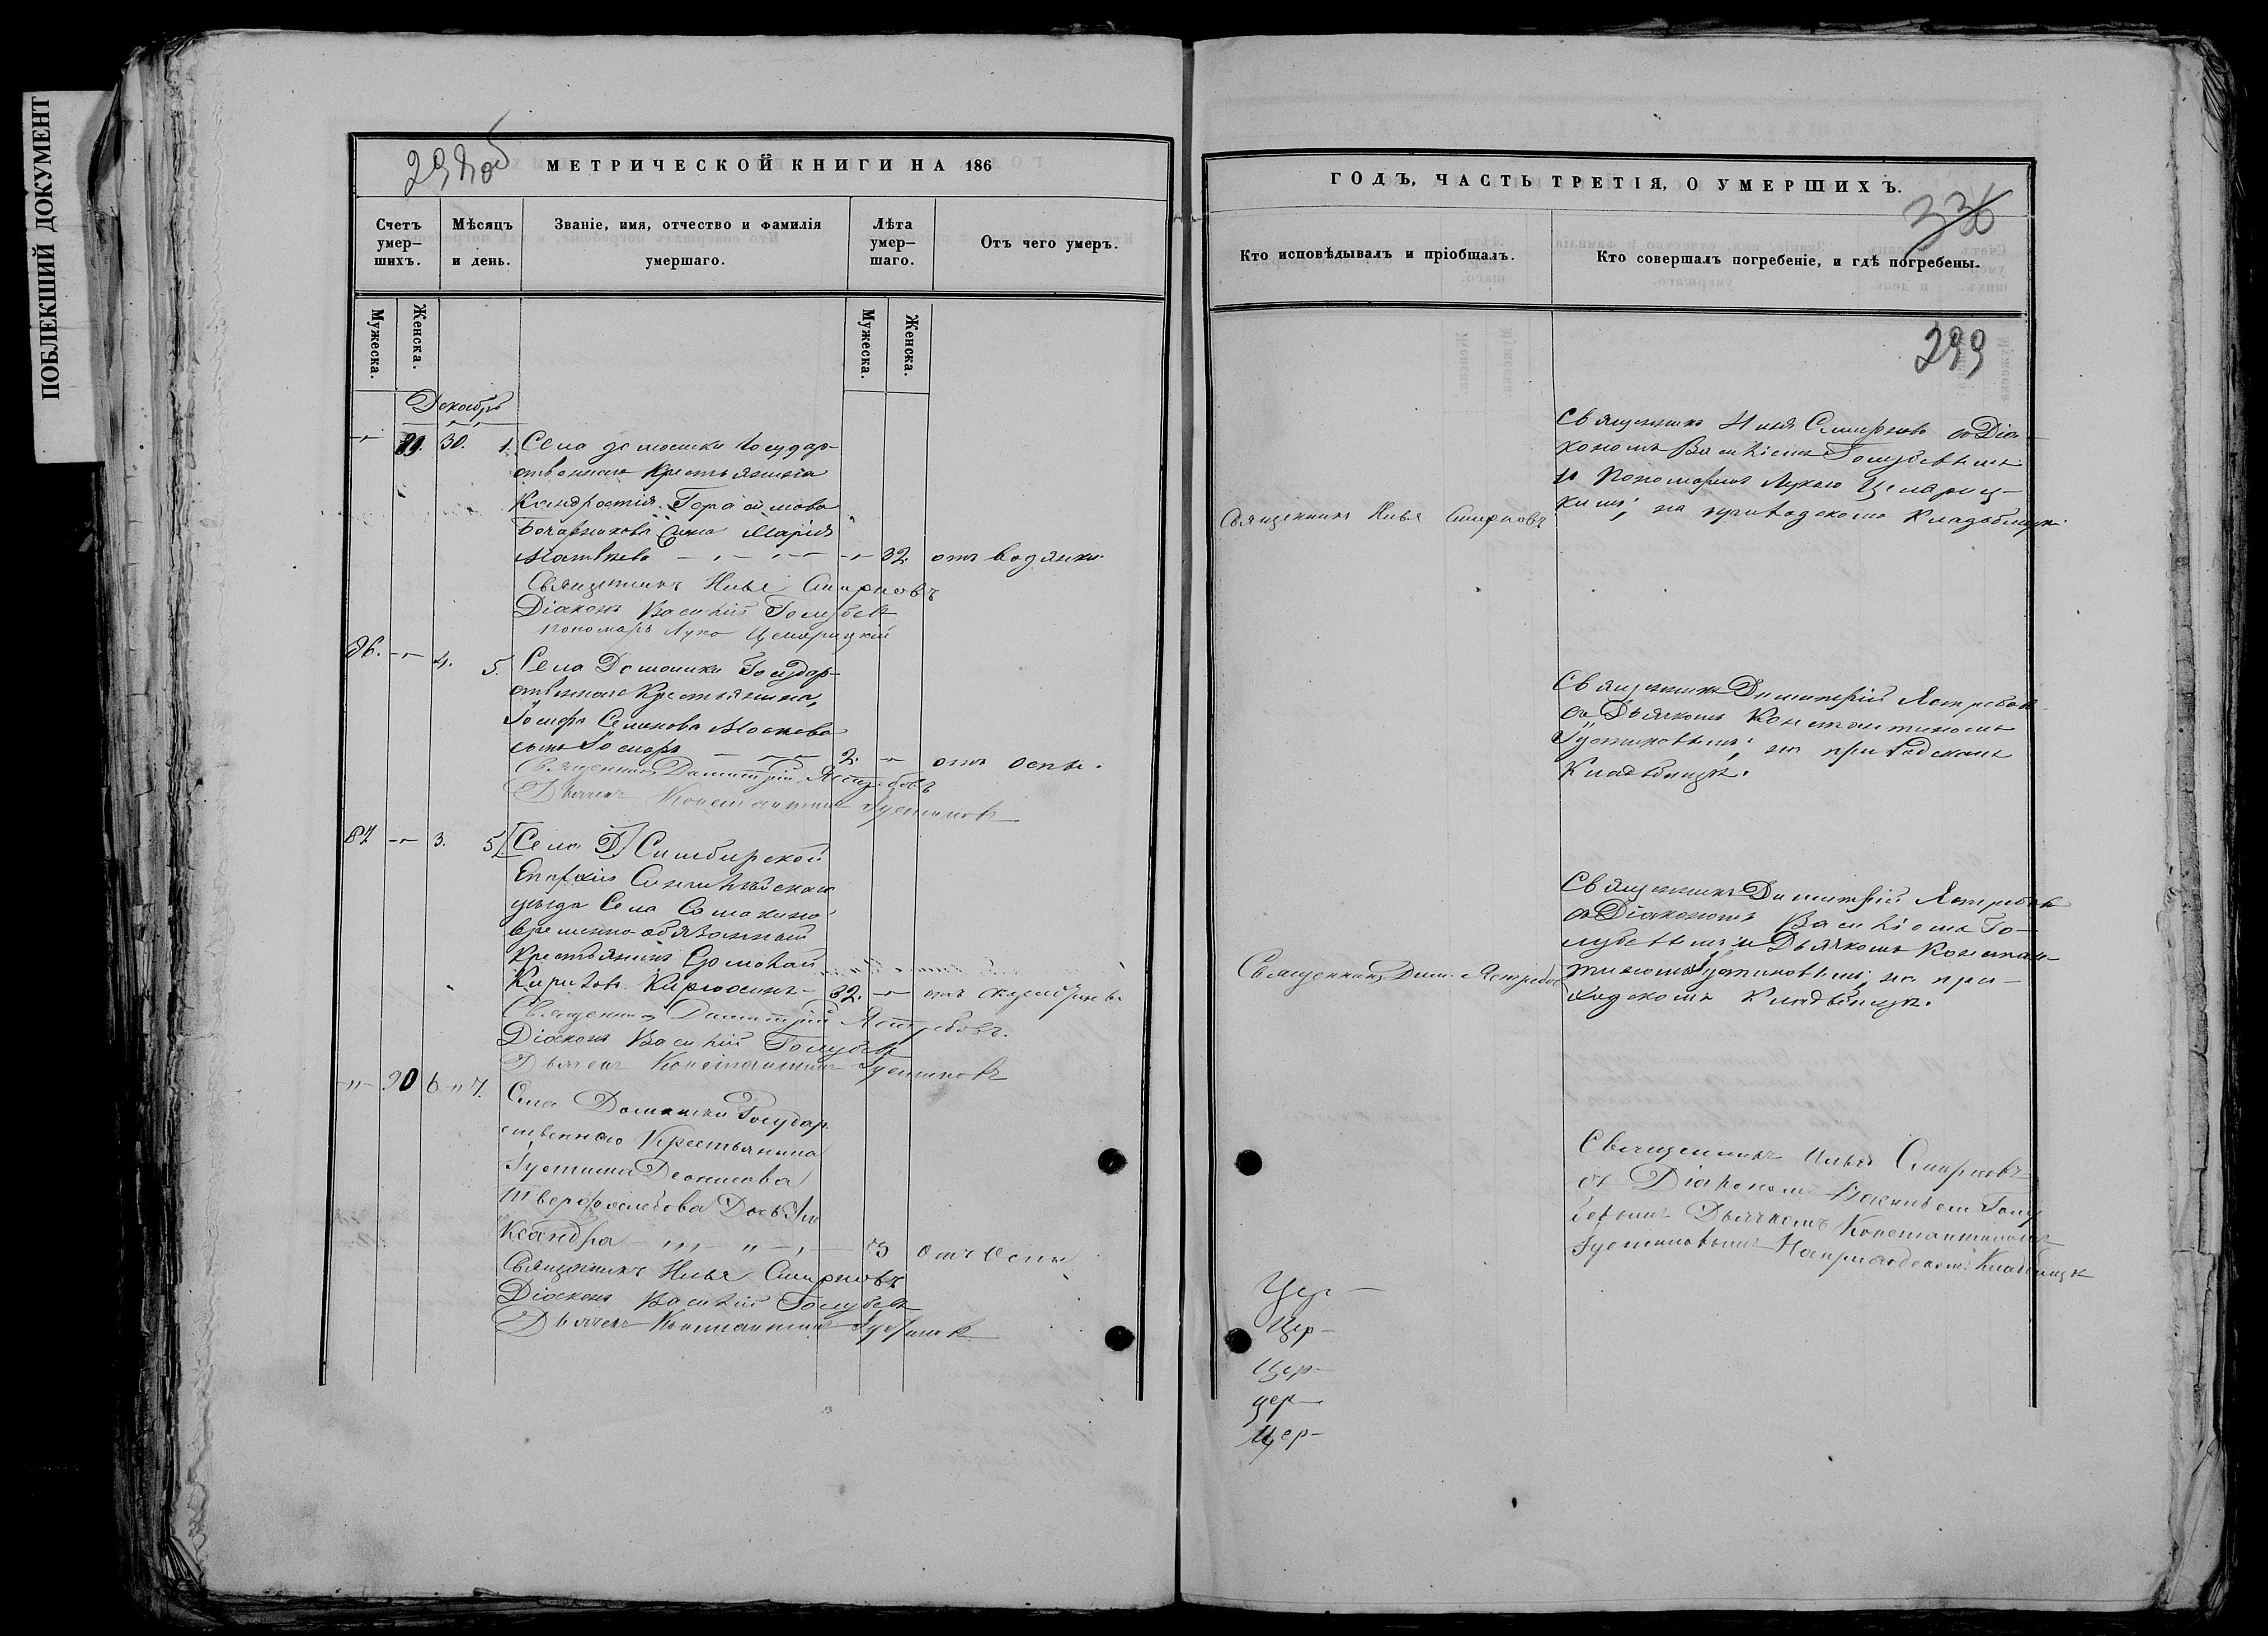 ПОБЛЕКШИЙ ДОКУМЕНТ
298 об
МЕТРИЧЕСКОЙ КНИГИ НА 186
Счетъ умер-шихъ.
Мѣсяцъ и день.
Званіе, имя, отчество и фамилія умершаго.
Лѣта умер-шаго.
Отъ чего умеръ.
Мужеска.
Женска.
Мужеска.
Женска.
Декабрь
89. 30. 1. Села Домашки Государ-
ственнаго Крестьянина
Кандратія Герасимова
жена Марія
Матвѣева 32. отъ водянки.
Священникъ Илья Смирновъ
Діаконъ Василій Голубевъ
пономарь Лука Цемарицкій
86. 4. 5. Села Домашки Государ-
ственнаго Крестьянина,
Іосифа Семенова
сынъ 2. отъ оспы.
Священникъ Димитрій Ястребовъ
Дьячекъ Константинъ Іустиновъ
87 3. 5. Села Д. Симбирской
Епархіи Сенгилѣйскаго
уѣзда Села
временно-обязанный
Крестьянинъ Ермолай
Кириловъ 32. отъ
Священникъ Димитрій Ястребовъ.
Діаконъ Василій Голубевъ
Дьячекъ Константинъ Іустиновъ
90 6 7. Села Домашки Государ
ственнаго Крестьянина
Іустина Деонисова
Твердохлебова Дочь Але
ксандра отъ Оспы
Священникъ Илья Смирновъ
Діаконъ Василій Голубевъ
Дьячекъ Константинъ Іустиновъ
ГОДЪ, ЧАСТЬ ТРЕТІЯ, О УМЕРШИХЪ.
336
Кто исповѣдывалъ и пріобщалъ.
Кто совершалъ погребеніе, и гдѣ погребены.
299
Священникъ Илья Смирновъ
Священникъ Илья Смирновъ съ Діа-
кономъ Василіемъ Голубевымъ
и Пономаремъ Лукою Цемариц-
кимъ; на приходскомъ Кладбищѣ.
Священникъ Димитрій Ястребовъ
съ Дьячкомъ Константиномъ
Іустиновымъ; на приходскомъ
Кладбищѣ.
Священникъ Дим. Ястребовъ
Священникъ Димитрій Ястребовъ
съ Діакономъ Василіемъ Го-
лубевымъ и Дьячкомъ Констан-
тиномъ Іустиновымъ; на при-
ходскомъ Кладбищѣ.
Священникъ Илья Смирновъ
съ Діакономъ Василіем Голу
бевымъ Дьячкомъ Константиномъ
Іустиновымъ На приходскомъ Кладбищѣ
Цер-
Цер-
Цер-
цер-
Цер-